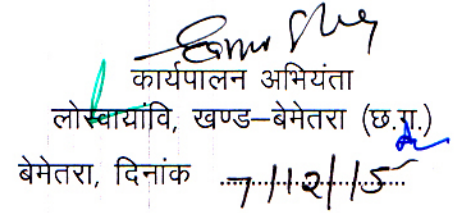 कार्यपालन अभियंता
लोस्वायांवि, खण्ड–बेमेतरा (छ.ग.)
बेमेतरा, दिनांक 7/12/15